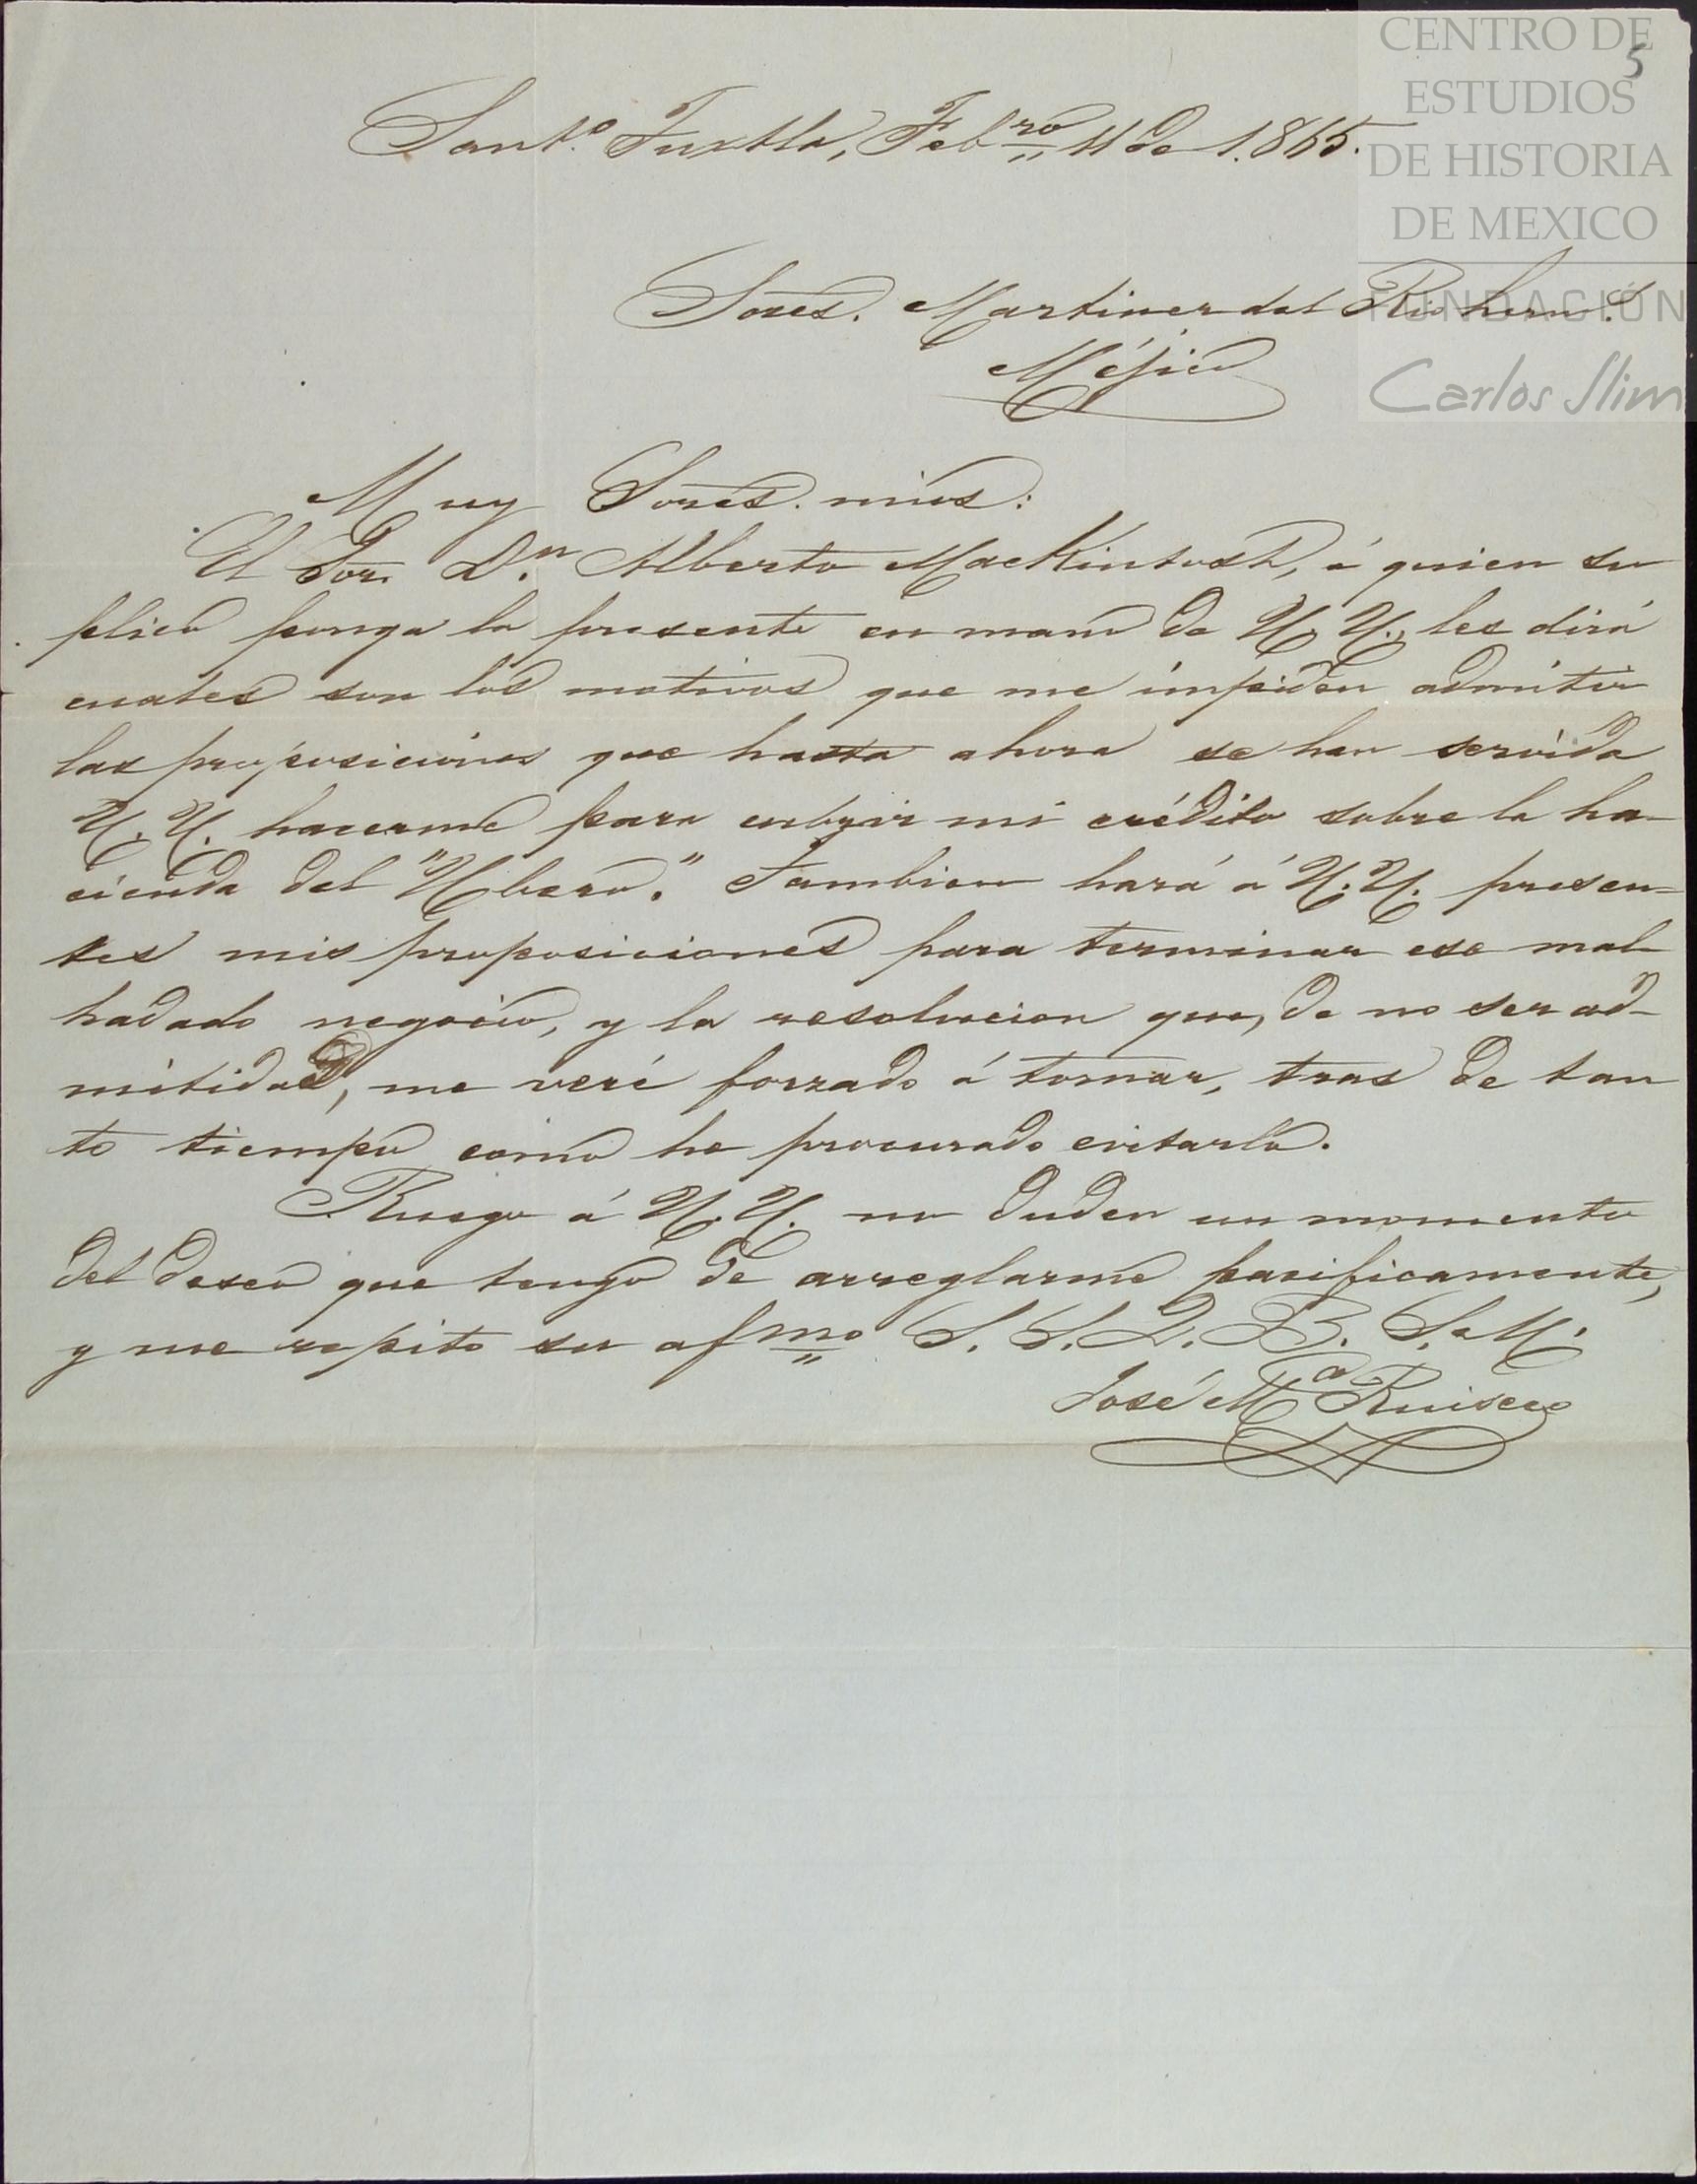 CENTRO DE
ESTUDIOS
DE HISTORIA
DE MEXICO
FUNDACIÓN
Carlos Slim
5
Sant.º Tuxtla, Feb.ro 11 de 1.865.
Sores. Martinez del Rio herm.s
Méjico
Muy Sores. mios:
El Sor. D.n Alberto MacKintosh, á quien su
plico ponga la presente en mano de U.U., les dirá
cuales son los motivos que me impiden admitir
las proposiciones que hasta ahora se han servido
U.U. hacerme para cubrir mi crédito sobre la ha-
cienda del "Ubero." Tambien hará á U.U. presen-
tes mis proposiciones para terminar ese mal-
hadado negocio, y la resolucion que, de no ser ad-
mitidas, me veré forzado á tomar, tras de tan
to tiempo como he procurado evitarlo.
Ruego á U.U. no duden un momento
del deseo que tengo de arreglarme pacificamente,
y me repito su afmo S. S. Q. B. S. M.
José Ma